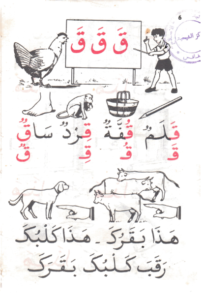 قَ قَ قَ
قَلَمٌ قُفَّةٌ قِرْدٌ سَاقٌ
قَ قُ قِ قٌ
هَذَا بَقَرُكَ - هَذَا كَلْبُكَ
رَقَبَ كَلْبُكَ بَقَرَكَ